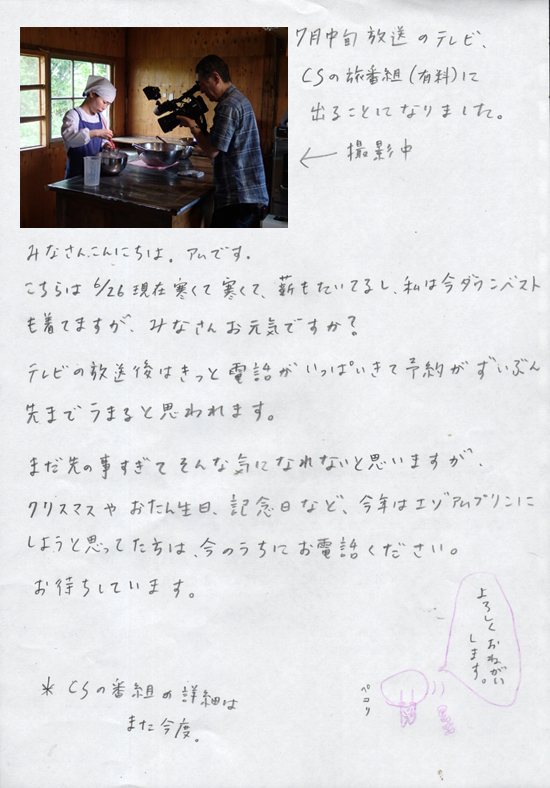 7月中旬放送のテレビ、
CSの旅番組(有料)に
出ることになりました。
← 撮影中
みなさんこんにちは。アムです。
こちらは6/26現在寒くて寒くて、薪もたいてるし、私は今ダウンベスト
も着てますが、みなさんお元気ですか?
テレビの放送後はきっと電話がいっぱいきて予約がずいぶん
先までうまると思われます。
まだ先の事すぎてそんな気になれないと思いますが、
クリスマスやおたん生日、記念日など、今年はエゾアムプリンに
しようと思ってた方は、今のうちにお電話ください。
お待ちしています。
よろしくおねがい
します。
ペロリ
* CSの番組の詳細は
また今度。